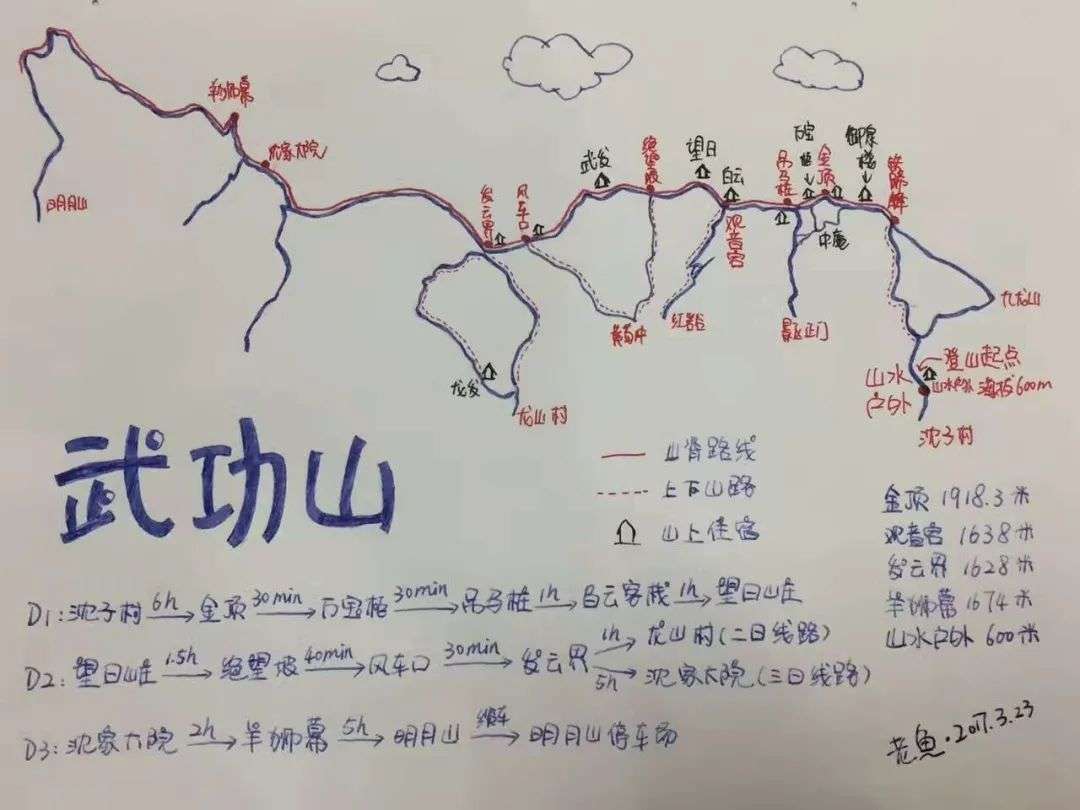 羊狮幕
沈家大院
明月山
发云界
风车口
武发
绝望坡
望日
白云
观音宕
吊马桩
万宝柜
金顶
中庵
铁蹄峰
九龙山
黄狗冲
红岩谷
景区正门
登山起点
山水户外
山水户外 海拔600m
沈子村
龙发
龙山村
武功山
山脊路线
上下山路
山上住宿
金顶 1918.3米
观音宕 1638米
发云界 1628米
羊狮幕 1674米
山水户外 600米
D1:沈子村 6h→ 金顶 30min→ 万宝柜 30min→ 吊马桩 1h→ 白云客栈 1h→ 望日山庄
D2:望日山庄 1.5h→ 绝望坡 40min→ 风车口 30min→ 发云界 1h→ 龙山村(二日线路)
5h→ 沈家大院(三日线路)
D3:沈家大院 2h→ 羊狮幕 5h→ 明月山 缆车→ 明月山停车场
老鱼·2017.3.23